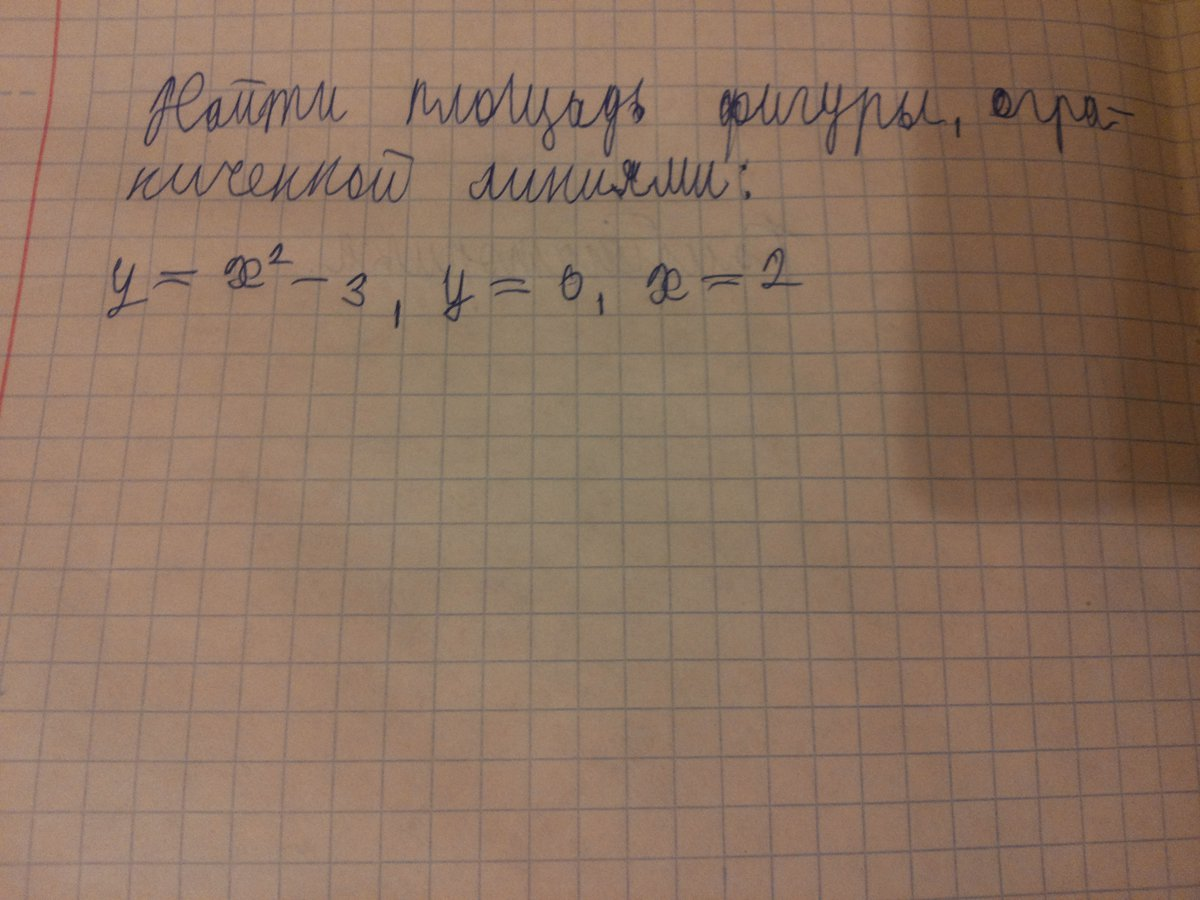 Найти площадь фигуры, огра-
ниченной линиями:
y = x² - 3, y = 0, x = 2